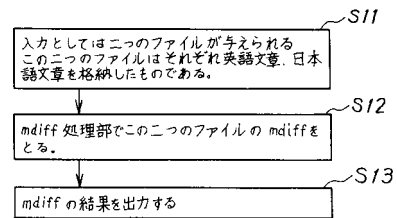 S11
入力としては二つのファイルが与えられる
この二つのファイルはそれぞれ英語文章、日本
語文章を格納したものである。
S12
mdiff 処理部でこの二つのファイルの mdiffを
とる。
S13
mdiff の結果を出力する